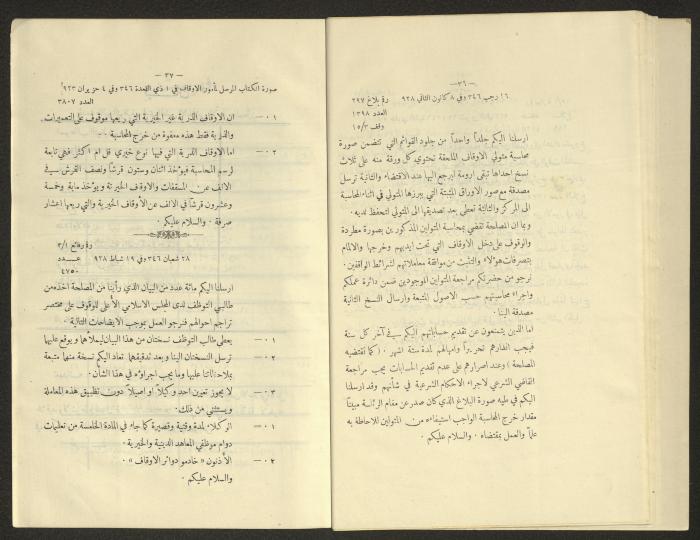 — ٣٦ —
١٦ رجب ٣٤٦ وفي ٨ كانون الثاني ٩٢٨ رقم بلاغ ٣٩٧
العدد ١٣٩٨
وقف ١٥/٣
ارسلنا اليكم جلداً واحداً من جلود القوائم التي تتضمن صورة
محاسبة متولي الاوقاف الملحقة تحتوي كل ورقة منه على ثلاث
نسخ احداها تبقى ارومة ليرجع اليها عند الاقتضاء والثانية ترسل
مصدقة مع صور الاوراق المثبتة التي يبرزها المتولي في اثناء المحاسبة
الى المركز والثالثة تعطى بعد تصديقها الى المتولي لتحفظ لديه ·
وبما ان المصلحة تقضي بمحاسبة المتولين المذكورين بصورة مطردة
والوقوف على دخل الاوقاف التي تحت ايديهم وخرجها والالمام
بتصرفات هؤلاء والتثبت من موافقة معاملاتهم لشرائط الواقفين ·
نرجو من حضرتكم مراجعة المتولين الموجودين ضمن دائرة عملكم
واجراء محاسبتهم حسب الاصول المتبعة وارسال النسخ الثانية
مصدقة الينا ·
اما الذين يتمنعون عن تقديم حساباتهم اليكم في آخر كل سنة
فيجب انذارهم تحريراً وامهالهم لمدة ستة اشهر · ( كما تقتضيه
المصلحة ) وعند اصرارهم على عدم تقديم الحسابات يجب مراجعة
القاضي الشرعي لاجراء الاحكام الشرعية في شأنهم وقد ارسلنا
اليكم في طيه صورة البلاغ الذي كان صدر عن مقام الرئاسة مبيناً
مقدار خرج المحاسبة الواجب استيفاءه من المتولين للاحاطة به
علماً والعمل بمقتضاه · والسلام عليكم ·
— ٣٧ —
صورة الكتاب المرسل لمأمور الاوقاف في ١ ذي القعدة ٣٤٦ وفي ٤ حزيران ٩٢٣
العدد ٣٨٠٧
٠١ — ان الاوقاف الذرية غير الخيرية التي ريعها موقوف على التعميرات
والذرية فقط هذه معفوة من خرج المحاسبة ·
٠٢ — اما الاوقاف الذرية التي فيها نوع خيري قل ام اكثر فهي تابعة
لرسم المحاسبة فيؤخذ اثنان وستون قرشاً ونصف القرش في
الالف عن المسقفات والاوقاف الخيرية ويؤخذ ماية وخمسة
وعشرون قرشاً في الالف عن الاوقاف الخيرية والتي ريعها اعشار
صرفة · والسلام عليكم ·
رقم رفائع ٣/١
٢٨ شعبان ٣٤٦ وفي ١٩ شباط ٩٢٨ عــدد
٤٧٥٠
ارسلنا اليكم مائة عدد من البيان الذي رأينا من المصلحة اخذه من
طالبي التوظف لدى المجلس الاسلامي الأعلى للوقوف على مختصر
تراجم احوالهم فنرجو العمل بموجب الايضاحات التالية ·
٠١ — يعطى طالب التوظف نسختان من هذا البيان ليملأهما ويوقع عليها
٠٢ — ترسل النسختان الينا وبعد تدقيقهما تعاد اليكم نسخة منها متبعة
بملاحظاتنا عليها وما يجب اجراؤه في هذا الشأن ·
٠٣ — لا يجوز تعيين احد وكيلاً او اصيلاً دون تطبيق هذه المعاملة
ويستثنى من ذلك ·
٠١ — الوكلاء لمدة وقتية وقصيرة كما جاء في المادة الخامسة من تعليمات
دوام موظفي المعاهد الدينية والخيرية ·
٠٢ — الأذنون « خادمو دوائر الاوقاف » ·
والسلام عليكم ·